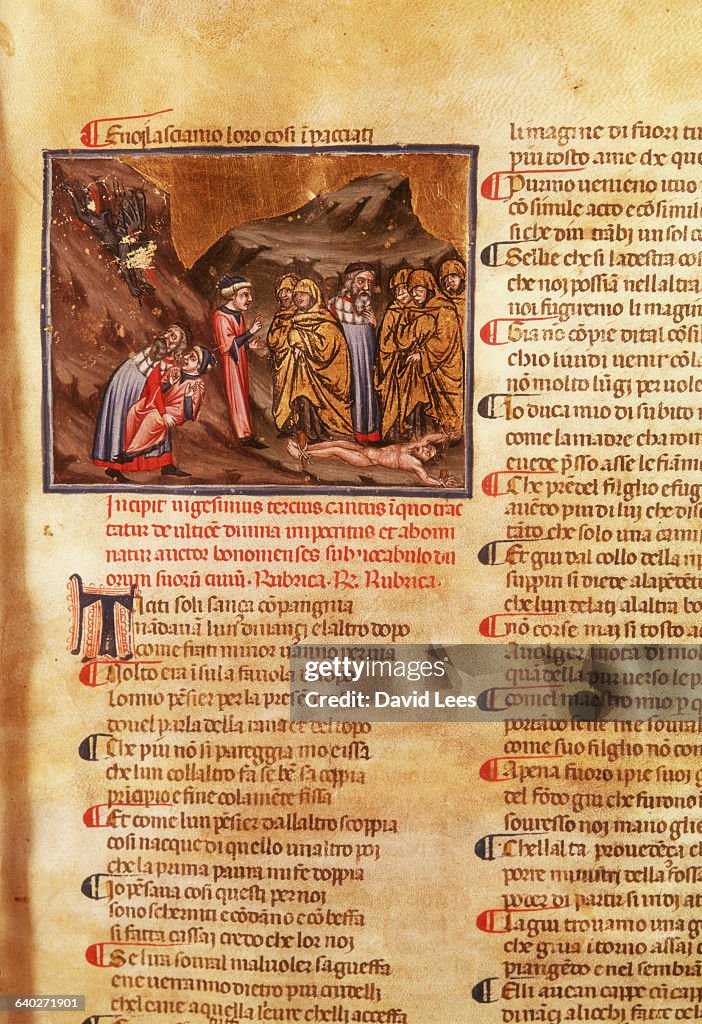 Enoi lasciamo loro cosi ĩpacciati
Incipit uigesimus tercius cantus ĩ quo trac
tatur de
diuina
et abomi
natur auctor bononienses sub uocabulo
orum suorũ ciuiũ. Rubrica. Rubrica.
Taciti soli sanca cõpangnia
nãdauã lun dinanzi elaltro dopo
come frati minor uanno per uia
Uolto era ĩsula fauola
lo mio pẽsier per la presẽ
douel parla della rana et del topo
Che piu nõ si pareggia mo e issa
che lun collaltro fa se bẽ sacoppia
principio e fine cola mẽte fissa
Et come lun pẽsier dallaltro scoppia
cosi nacque di quello unaltro poi
che la prima paura mi fe doppia
Io pẽsaua cosi questi per noi
sono scherniti e cõ dãno e cõ beffa
si fatta cassai credo che lor noi
Se lira soural maluoler sagueffa
e ne uerranno dietro piu crudelli
chel cane a quella leure chelli acceffa
li magine di fuori
piu tosto a me che
Purmo uenieno
cõ simile acto e cõ simil
si che din trãbi un sol
Selli e che si la destra
che noi possiã nellaltra
noi fugiremo li magin
Gia nõ cõpie di tal cõsi
chio li uidi uenir cõ
nõ molto lũgi per uole
Io duca mio di subito
come la madre cha
e uede p̃sso asse le fiam
Che prende il filglio e fug
auẽdo piu di lui che di se
tãto che solo una cami
Et giu dal collo della
suppin si diede alapẽdẽt
che lun de lati alaltra bo
nõ corse mai si tosto a
Auolger
quãdella piu uerso le
Comel maestro mio p
portãdosene me soural
come suo filglio nõ com
Apena fuoro i pie suoi
del fõdo giu che furono
souresso noi ma no gli e
Chellalta prouedẽça
porre ministri della fossa
poder di partir
La giu trouamo una g
che giua itorno assai
piangẽdo e nel sembian
Elli auean cappe cũ cap
dinãçi alicchi fatte de la
gettyimages®
Credit: David Lees
640271901